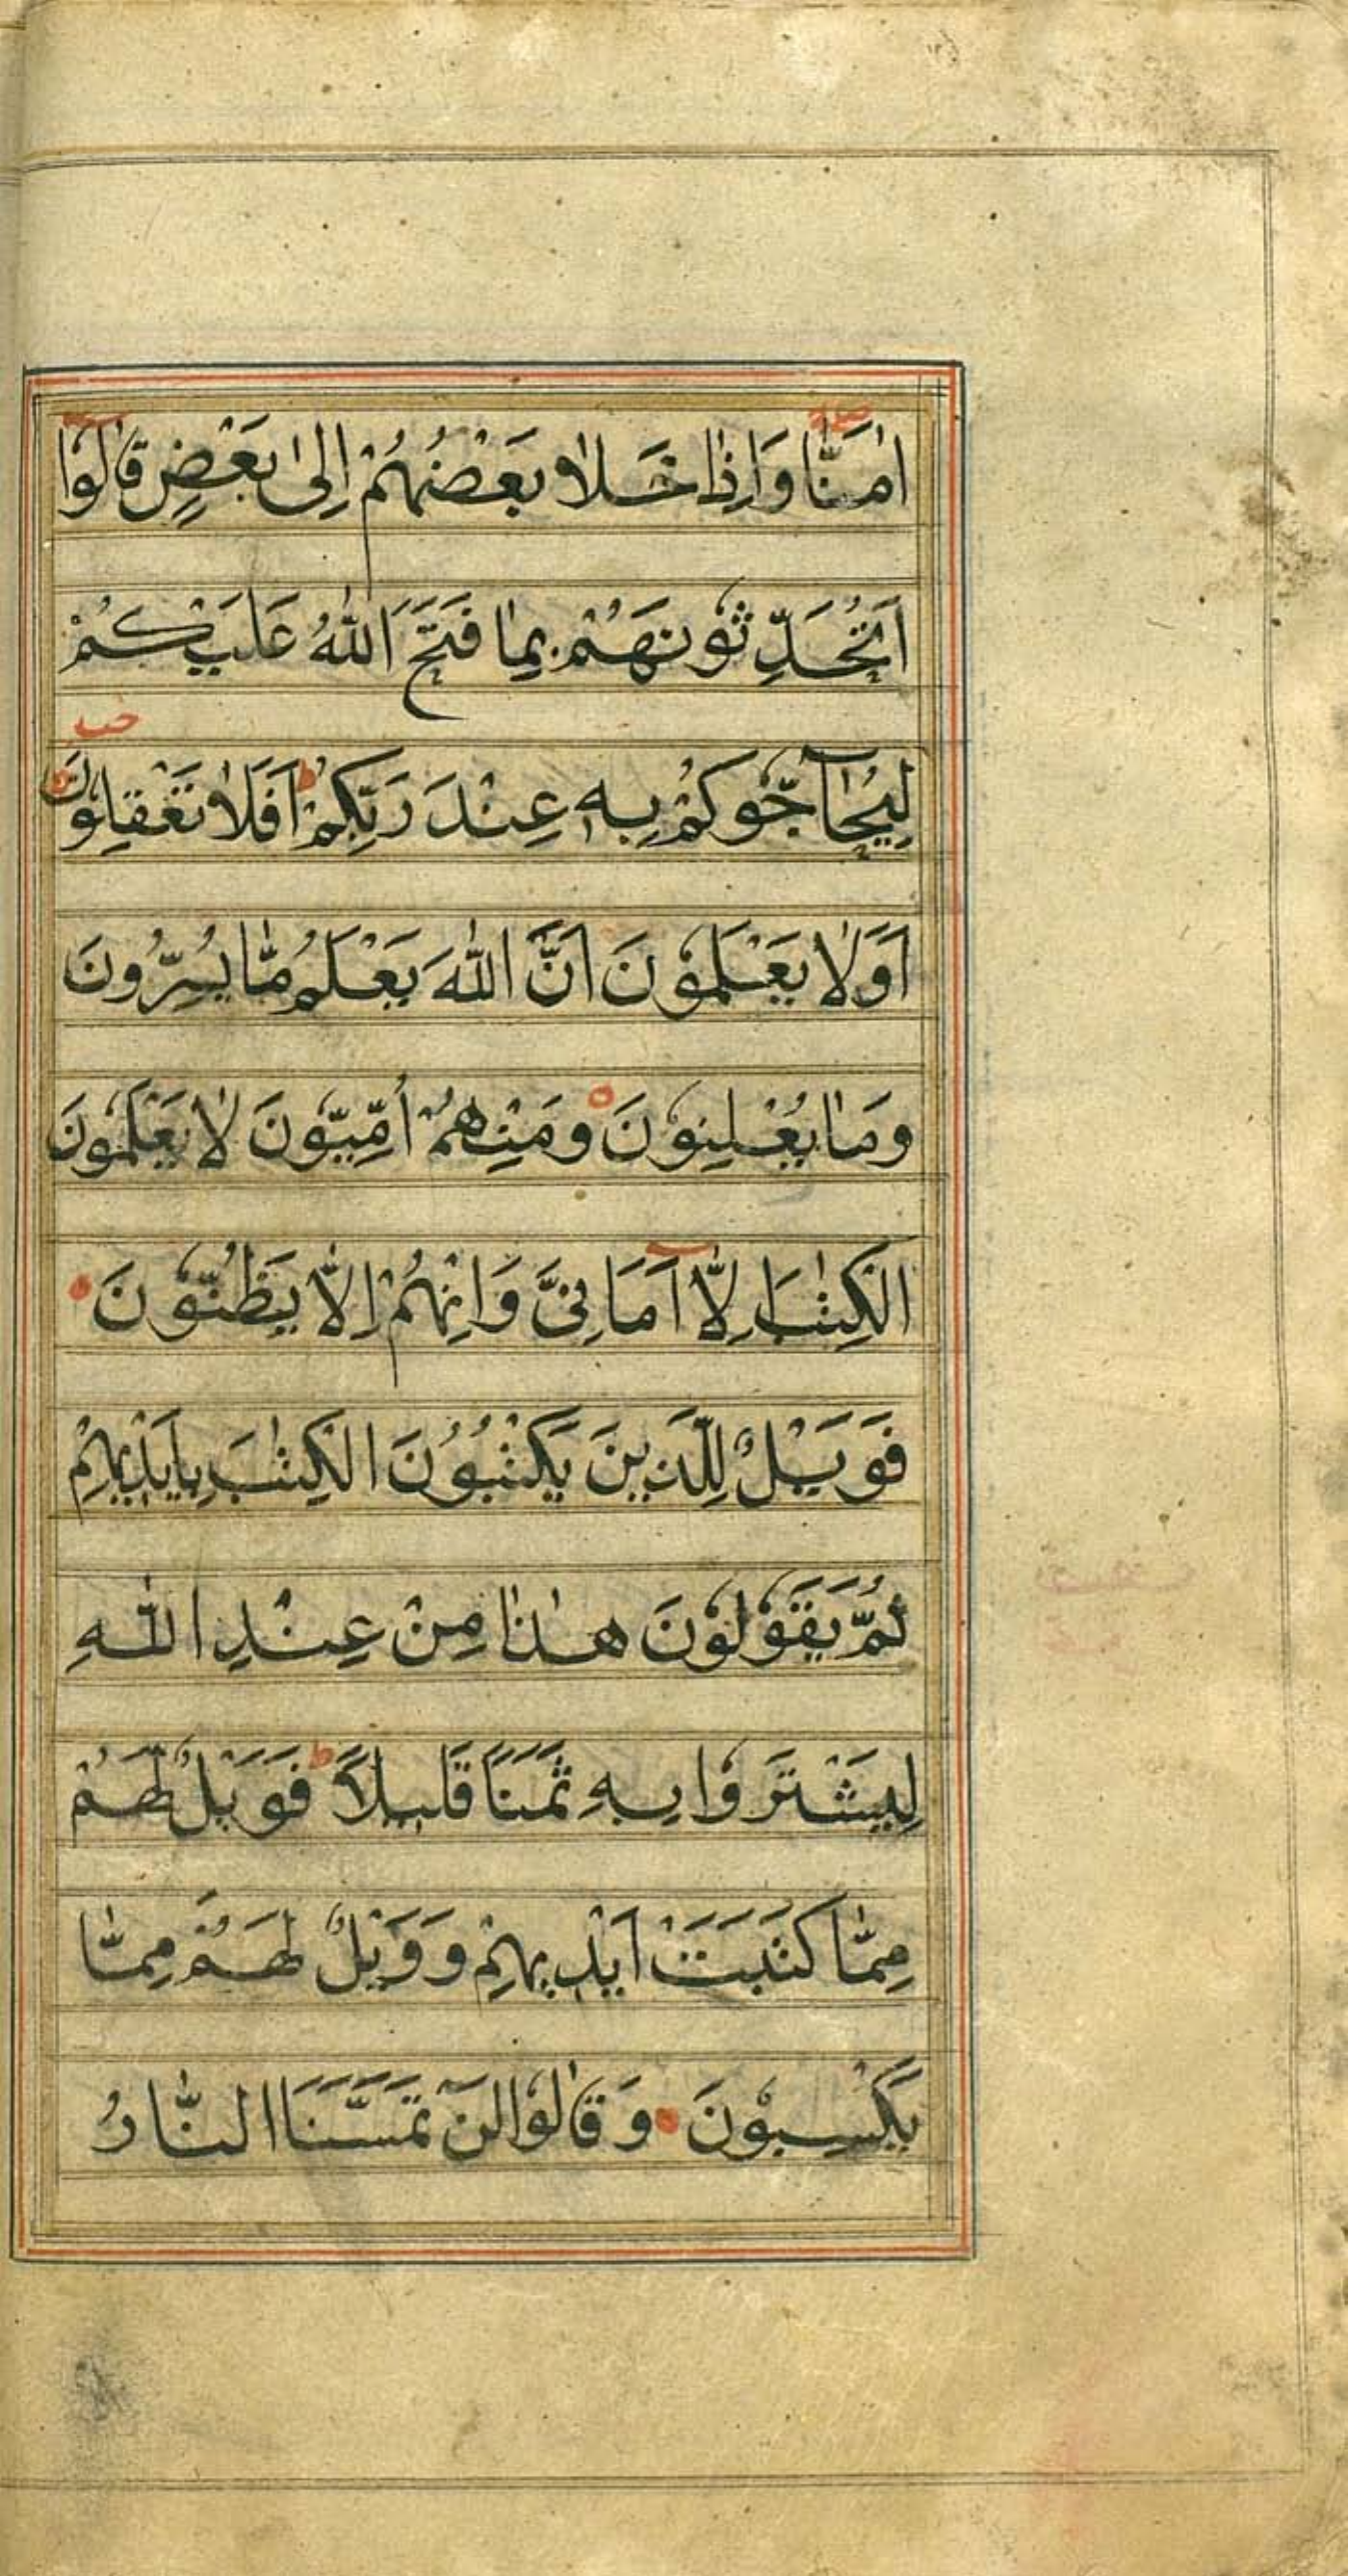 اٰمَنَّا وَاِذَا خَلَا بَعْضُهُمْ اِلٰى بَعْضٍ قَالُوْا
اَتُحَدِّثُوْنَهُمْ بِمَا فَتَحَ اللّٰهُ عَلَيْكُمْ
لِيُحَآجُّوْكُمْ بِهٖ عِنْدَ رَبِّكُمْ ط اَفَلَا تَعْقِلُوْنَ
اَوَلَا يَعْلَمُوْنَ اَنَّ اللّٰهَ يَعْلَمُ مَا يُسِرُّوْنَ
وَمَا يُعْلِنُوْنَ ه وَمِنْهُمْ اُمِّيُّوْنَ لَا يَعْلَمُوْنَ
الْكِتٰبَ اِلَّا اَمَانِىَّ وَاِنْهُمْ اِلَّا يَظُنُّوْنَ
فَوَيْلٌ لِلَّذِيْنَ يَكْتُبُوْنَ الْكِتٰبَ بِاَيْدِيْهِمْ
ثُمَّ يَقُوْلُوْنَ هٰذَا مِنْ عِنْدِ اللّٰهِ
لِيَشْتَرَوْا بِهٖ ثَمَنًا قَلِيْلًا ط فَوَيْلٌ لَهُمْ
مِمَّا كَتَبَتْ اَيْدِيْهِمْ وَوَيْلٌ لَهُمْ مِمَّا
يَكْسِبُوْنَ وَقَالُوْا لَنْ تَمَسَّنَا النَّارُ